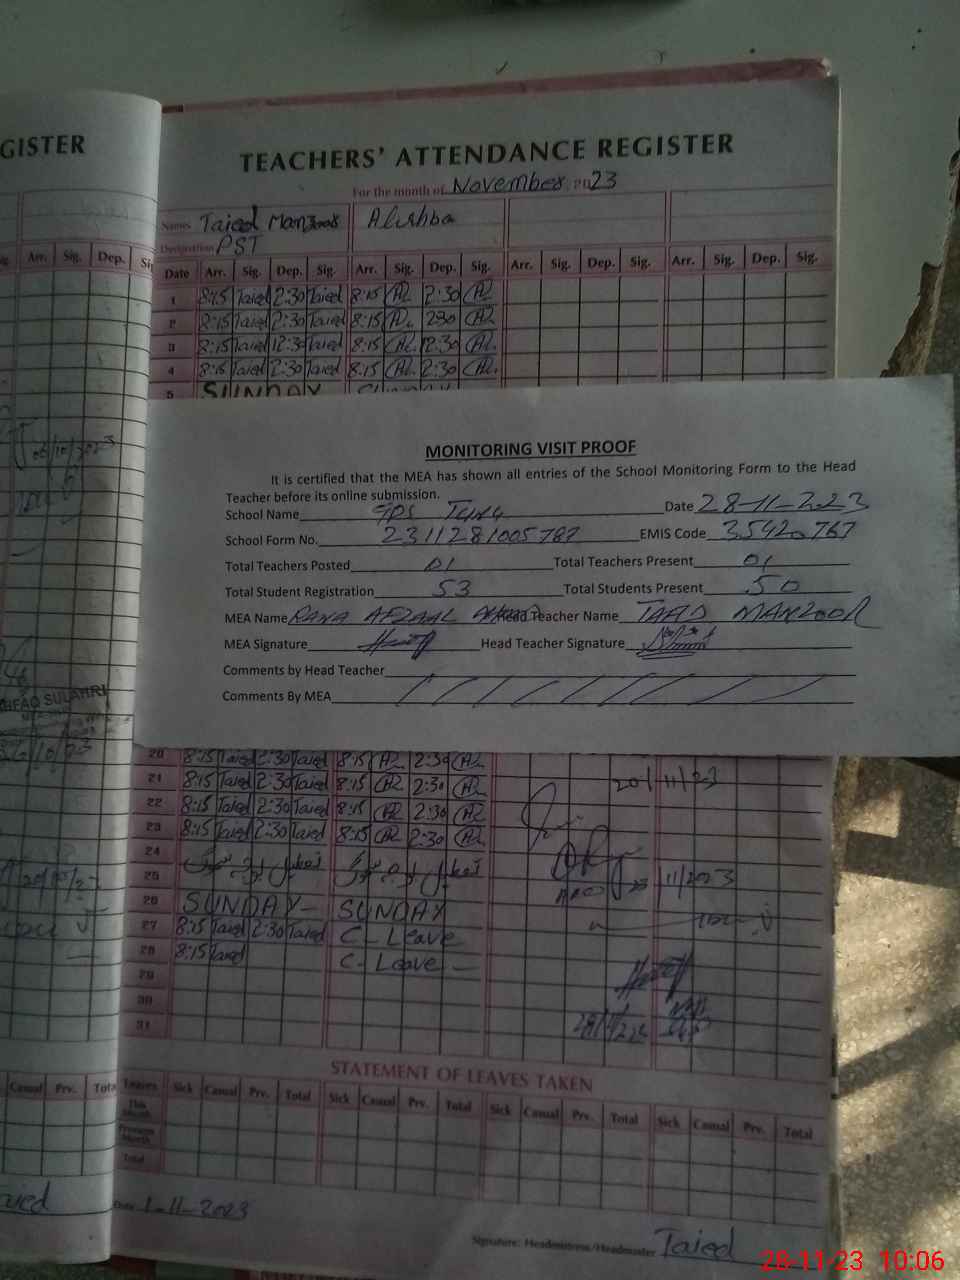 GISTER
TEACHERS' ATTENDANCE REGISTER
For the month of November 2023
Names Taied Manzoor Alishba
Designation PST
Arr. Sig. Dep. Sig.
Date Arr. Sig. Dep. Sig. Arr. Sig. Dep. Sig. Arr. Sig. Dep. Sig. Arr. Sig. Dep. Sig.
1 8:15 Taied 2:30 Taied 8:15 2:30
2 8:15 Taied 2:30 Taied 8:15 230
3 8:15 Taied 12:30 Taied 8:15 12:30
4 8:15 Taied 2:30 Taied 8:15 2:30
5 SUNDAY SUNDAY
MONITORING VISIT PROOF
It is certified that the MEA has shown all entries of the School Monitoring Form to the Head
Teacher before its online submission.
School Name GPS Date 28-11-2023
School Form No. 2311281005787 EMIS Code 35420767
Total Teachers Posted 01 Total Teachers Present 01
Total Student Registration 53 Total Students Present 50
MEA Name RANA AFZAAL Head Teacher Name TAIED MANZOOR
MEA Signature Head Teacher Signature
Comments by Head Teacher
Comments By MEA
20 8:15 Taied 2:30 Taied 8:15 2:30
21 8:15 Taied 2:30 Taied 8:15 2:30 20/11/23
22 8:15 Taied 2:30 Taied 8:15 2:30
23 8:15 Taied 2:30 Taied 8:15 2:30
24
25 11/2023
26 SUNDAY SUNDAY
27 8:15 Taied 2:30 Taied C-Leave
28 8:15 Taied C-Leave
29
30
31
STATEMENT OF LEAVES TAKEN
Casual Prv. Total
Leaves Sick Casual Prv. Total Sick Casual Prv. Total Sick Casual Prv. Total Sick Casual Prv. Total
This Month
Previous Month
Total
Date 1-11-2023
Signature: Headmistress/Headmaster Taied
28-11-23 10:06